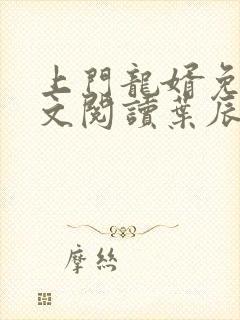 上門龍婿免
文閱讀葉辰
摩絲